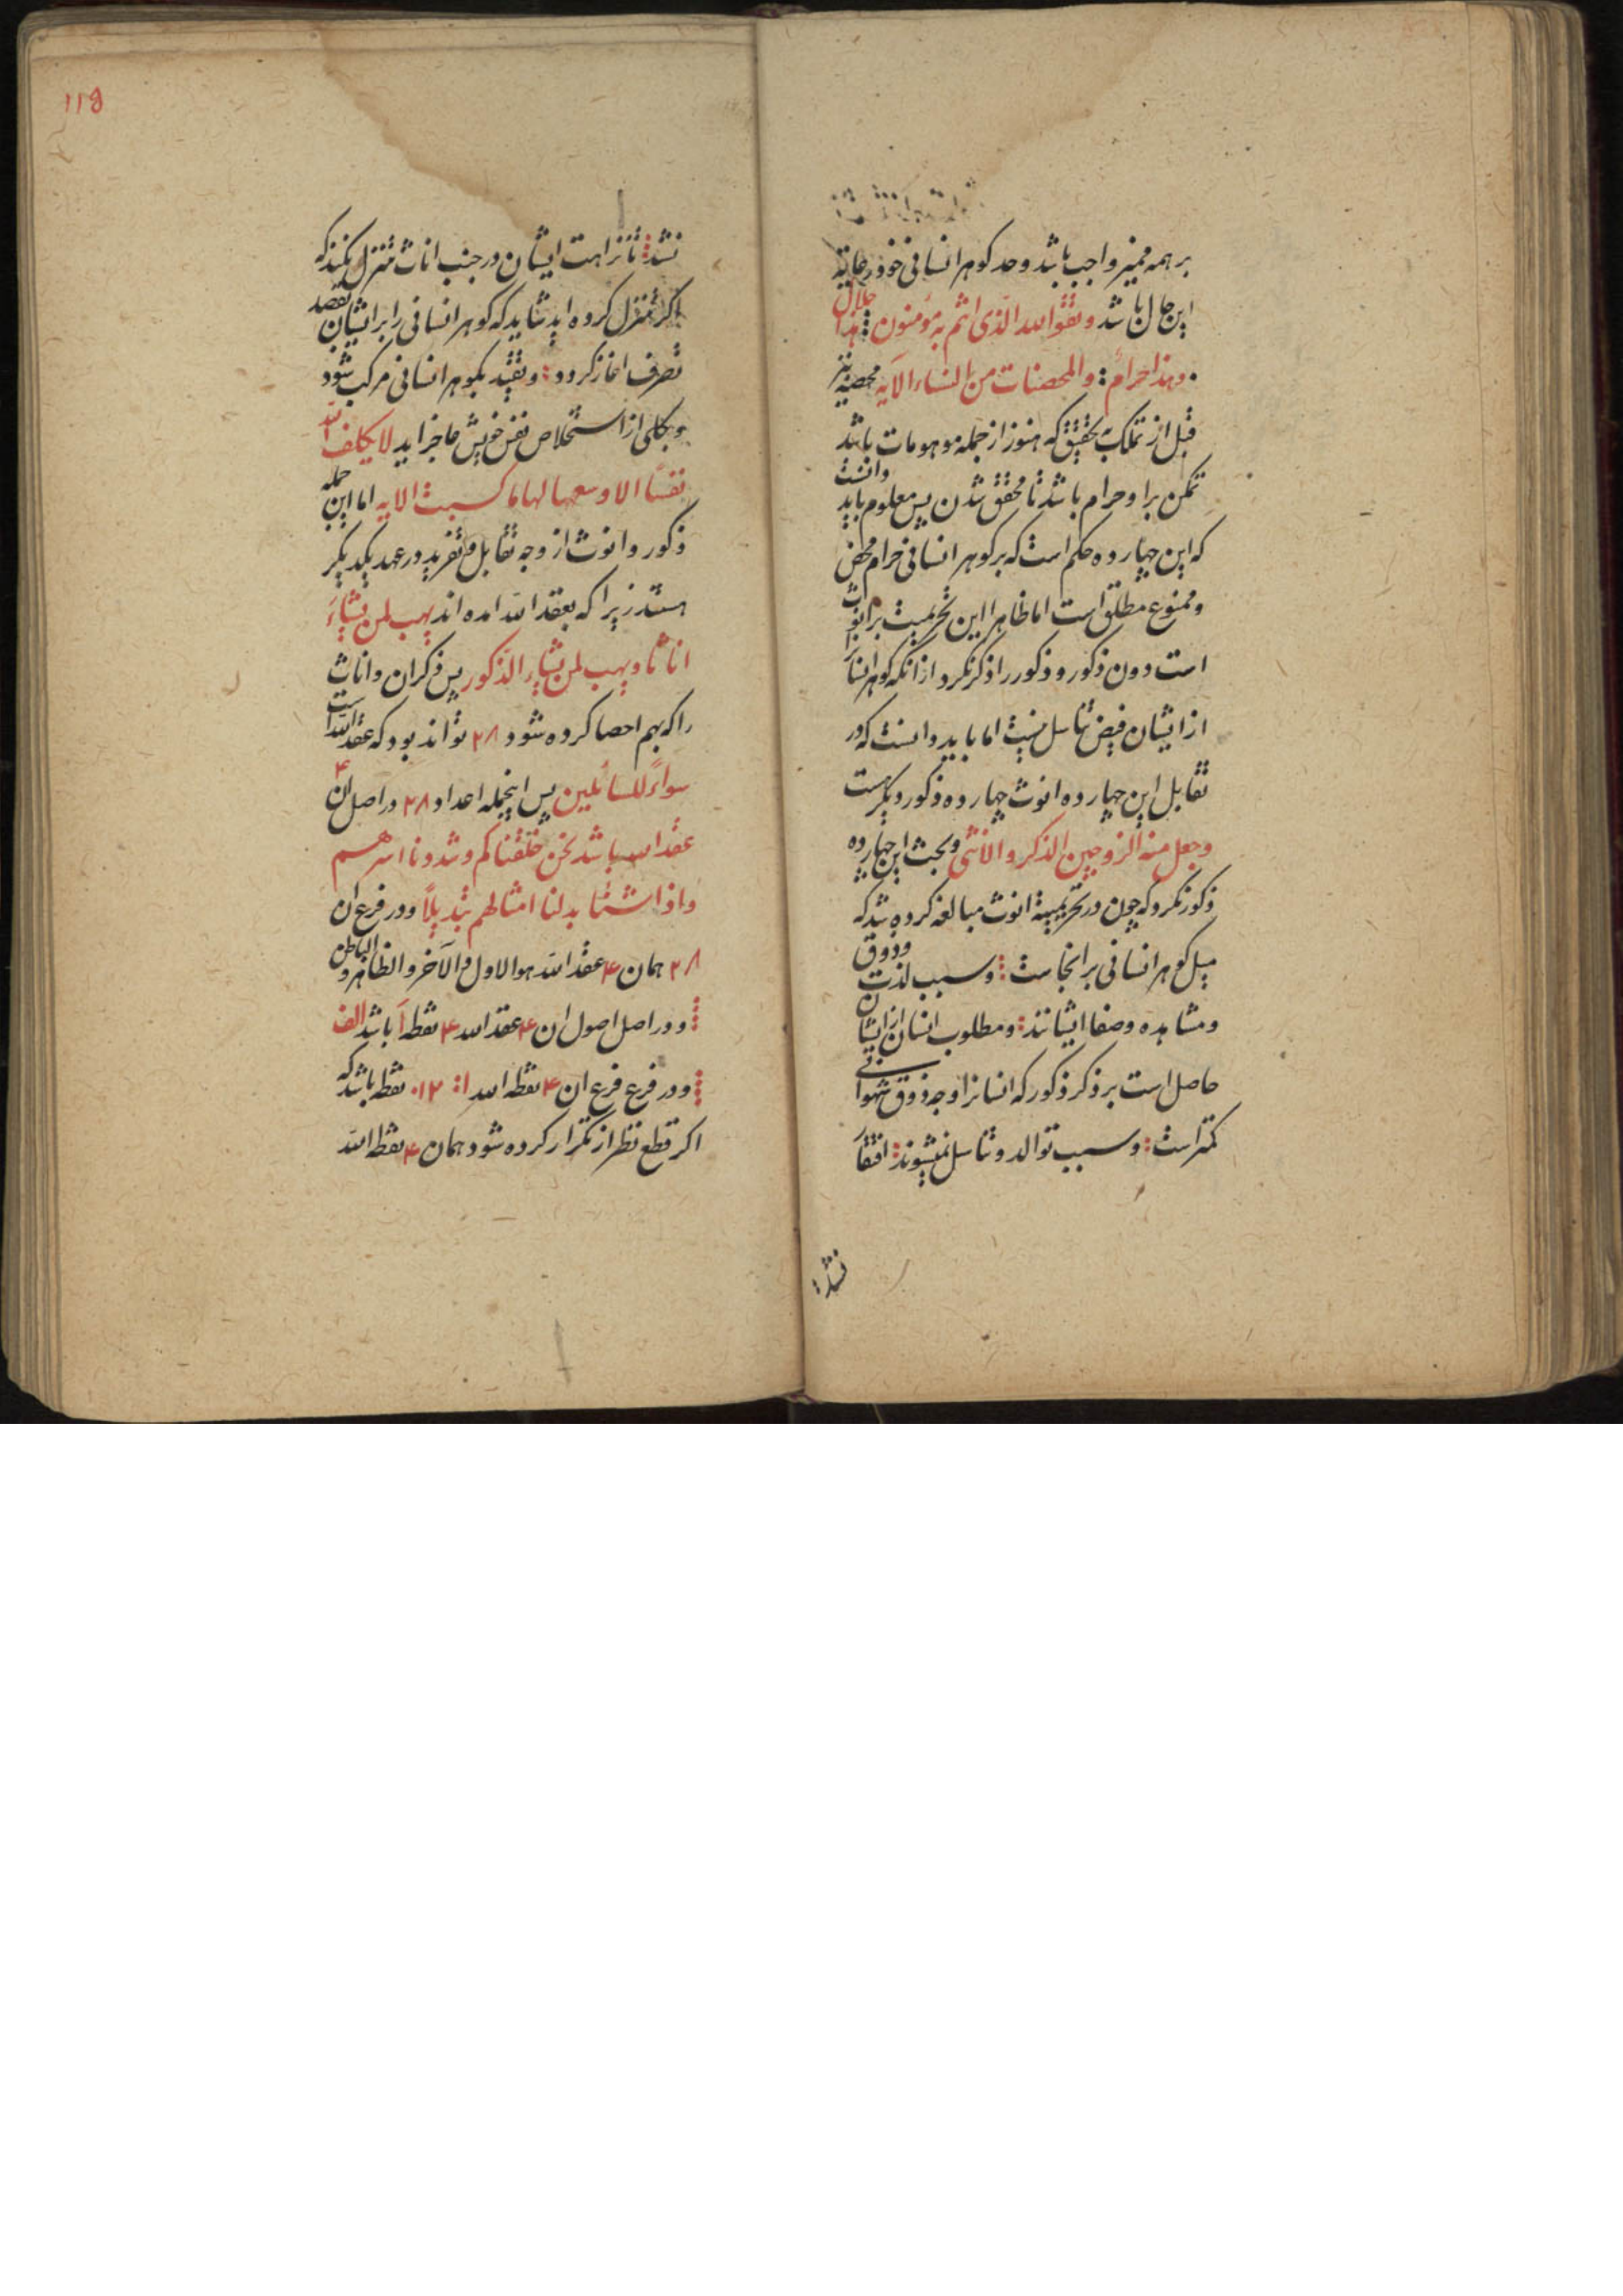 بر همه ممیز واجب باشد وحد کوهر انسانی خود رعایة
این حال باشد وتقوا الله الذی انتم به مؤمنون ⁝ هذا حلال
وهذا حرامٌ ⁝ والمحصنات من النساء الآیه محصنه نیز
قبل از تملک بتحقیق که هنوز از جمله موهومات باشد
تمکن برا وحرام باشد تا محقق شدن پس معلوم باید دانست
که این چهارده حکم است که بر کوهر انسانی حرام محض
وممنوع مطلق است اما ظاهرا این تحریمیت بر انوث
است دون ذکور وذکور را ذکر نکرد از انکه کوهر انسانرا
از ایشان فیض تناسل نیست اما باید دانست که در
تقابل این چهارده انوث چهارده ذکور دیکر هست
وجعل منه الزوجین الذکر والانثی وبحث این چهارده
ذکور نکرد که چون در تحریمیة انوث مبالغه کرده شد که
میل کوهر انسانی بر انجاست ⁝ وسبب لذت وذوق
ومشاهده وصفا ایشانند ⁝ ومطلوب انسان از ایشان
حاصل است بر ذکر ذکور که انسانرا از وجه ذوق شهوانی
کمتر است ⁝ وسبب توالد وتناسل نمیشوند ⁝ افتقار
نشد ⁝
119
نشد ⁝ تا نزاهت ایشان در جنب اناث متنزل نکند که
اکر متنزل کرده اید شاید که کوهر انسانی را بر ایشان بقصد
تصرف اغاز کردد ⁝ وبقید بکوهر انسانی مرکب شود
وبکلی از استخلاص نفس خویش عاجز اید لا یکلف الله
نفسًا الا وسعها لها ما کسبت الایه اما این جمله
ذکور وانوث از وجه تقابل وتفرید در عهد یکدیکر
هستند زیرا که بعقد الله امده اند یهب لمن یشاءُ
اناثا ویهب لمن یشاء الذکور پس ذکران واناث
را که بهم احصا کرده شود ۲۸ تواند بود که عقد الله است
سواءً للسائلین پس اینجمله اعداد ۲۸ در اصل ان ۴
عقد الله باشد نحن خلقناکم وشددنا اسرهم
واذا شئنا بدلنا امثالهم تبدیلًا ودر فرع ان
۲۸ همان ۴ عقد الله هو الاول والآخر والظاهر والباطن
⁝ ودر اصل اصول ان ۴ عقد الله ۴ نقطه آ باشد الف
⁝ ودر فرع فرع ان ۴ نقطه الله ا ⁝ ۱۲۰ نقط باشد که
اکر قطع نظر از تکرار کرده شود همان ۴ نقطه الله